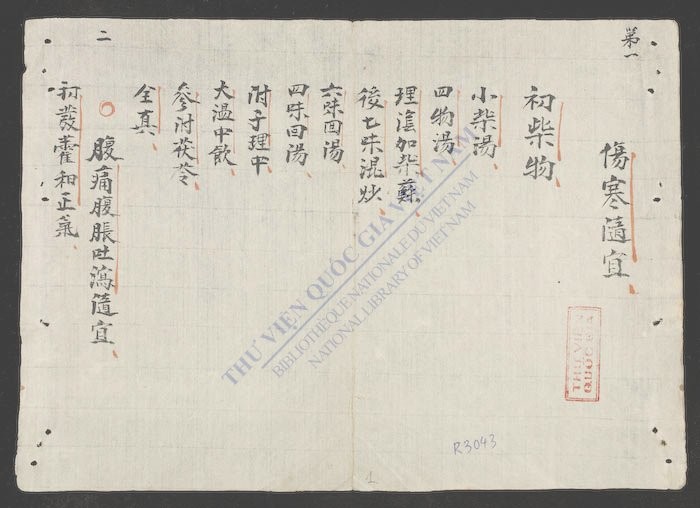 第一
傷寒隨宜
初柴物
小柴湯
四物湯
理陰加柴蘇
後七味混炒
六味回湯
四味回湯
附子理中
大温中飲
參附茯苓
全真
腹痛腹脹吐瀉隨宜
初發藿和正氣
二
THƯ VIỆN QUỐC GIA VIỆT NAM
BIBLIOTHÈQUE NATIONALE DU VIETNAM
NATIONAL LIBRARY OF VIETNAM
THƯ VIỆN
QUỐC GIA
R3043
1